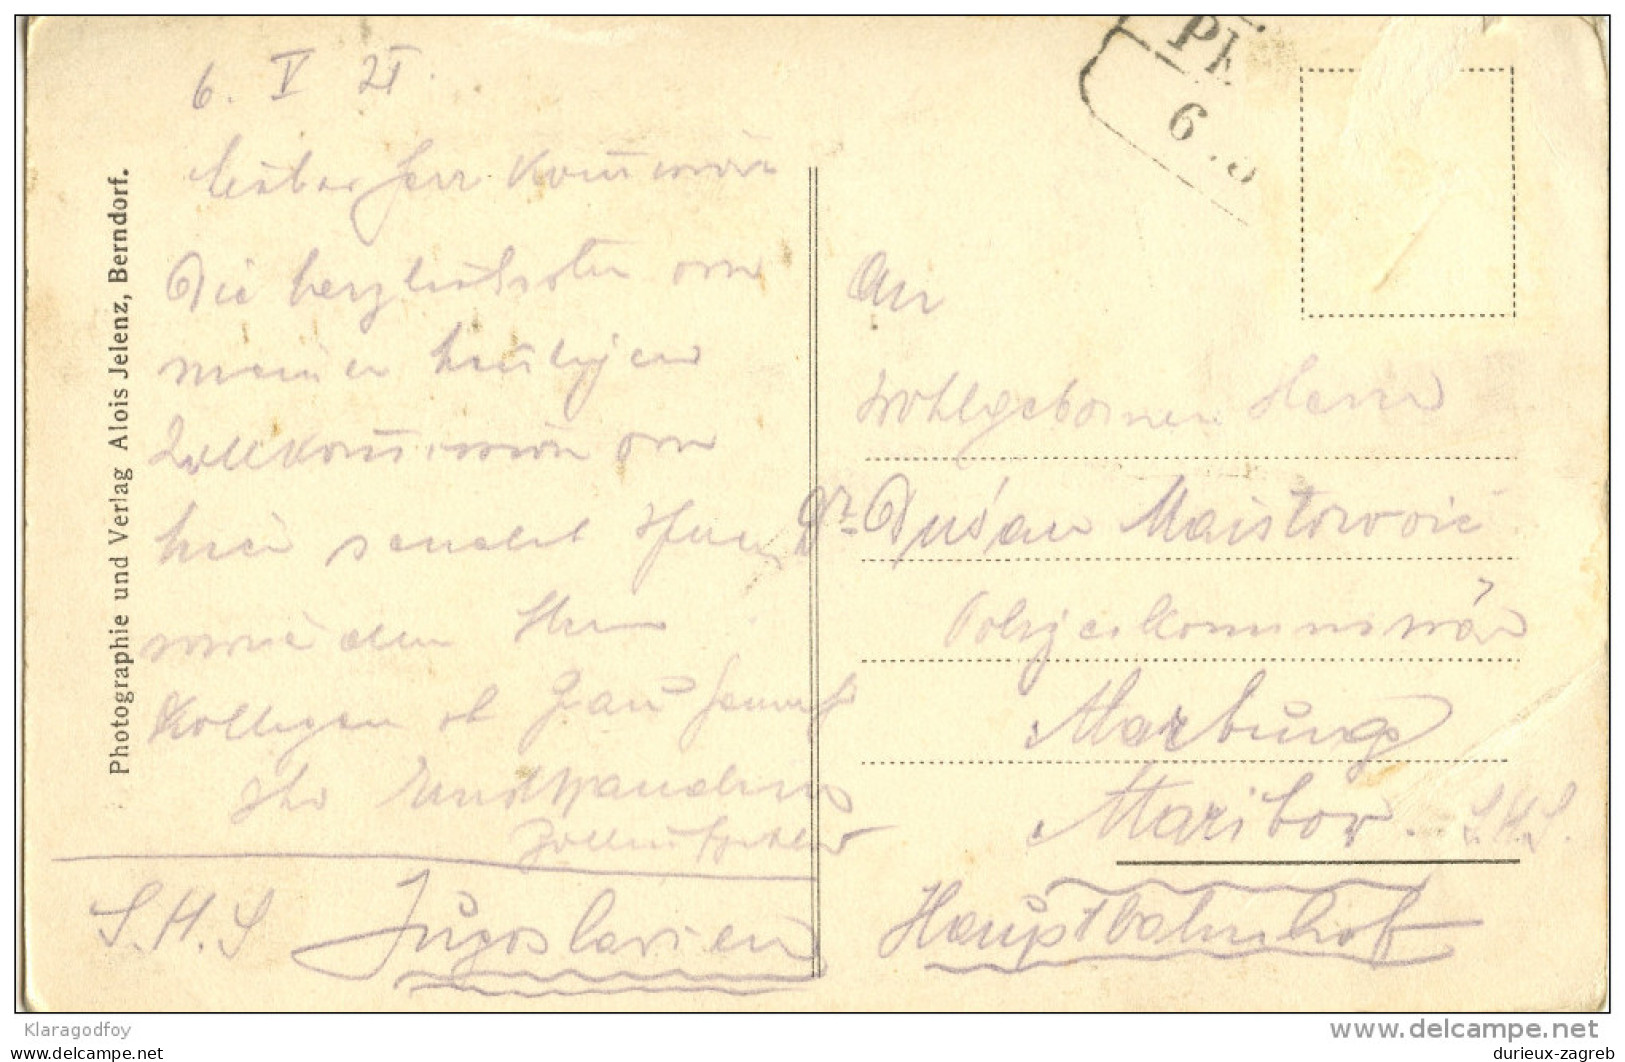 6. V 21.
Lieber Herr Kommissär
Die herzlichsten von
meiner heutigen
Zollkommission von
hier sendet Ihnen
sowie den Herrn
Kollegen
Ihr
S.H.S Jugoslavien
Photographie und Verlag Alois Jelenz, Berndorf.
PE
6.5
An
Wohlgeboren Herrn
Dr. Dušan Maistorović
Polizeikommissär
Marburg
Maribor. S.H.S.
Hauptbahnhof
Klaragodfoy
www.delcampe.net
durieux-zagreb